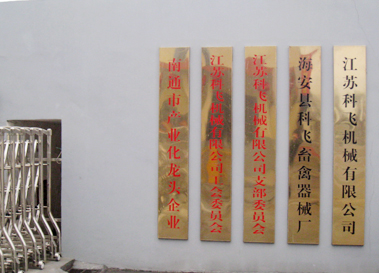 南通市产业化龙头企业
江苏科飞机械有限公司工会委员会
江苏科飞机械有限公司支部委员会
海安县科飞畜禽器械厂
江苏科飞机械有限公司